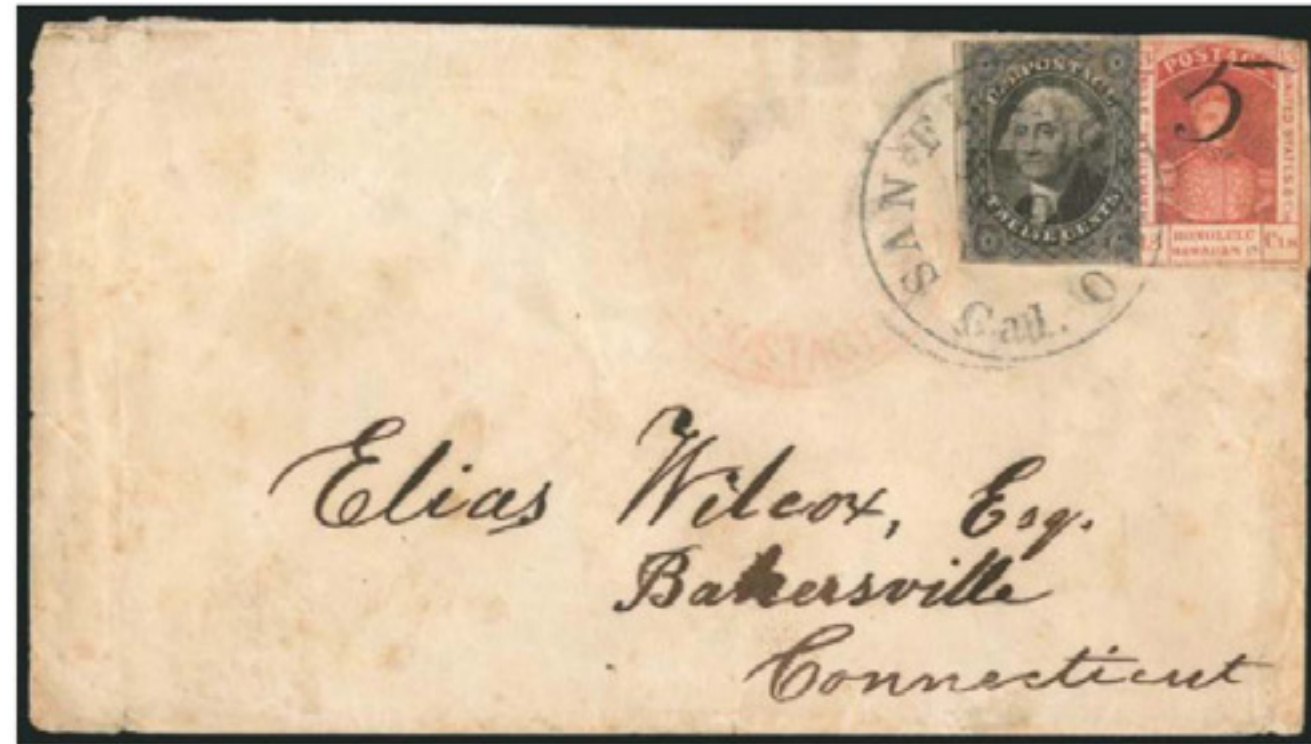 U.S. POSTAGE
TWELVE CENTS
POSTAGE
5
UNITED STATES
HONOLULU
HAWAIIAN Is.
Cts
SAN
Cal.
Elias Wilcox, Esq.
Bakersville
Connecticut